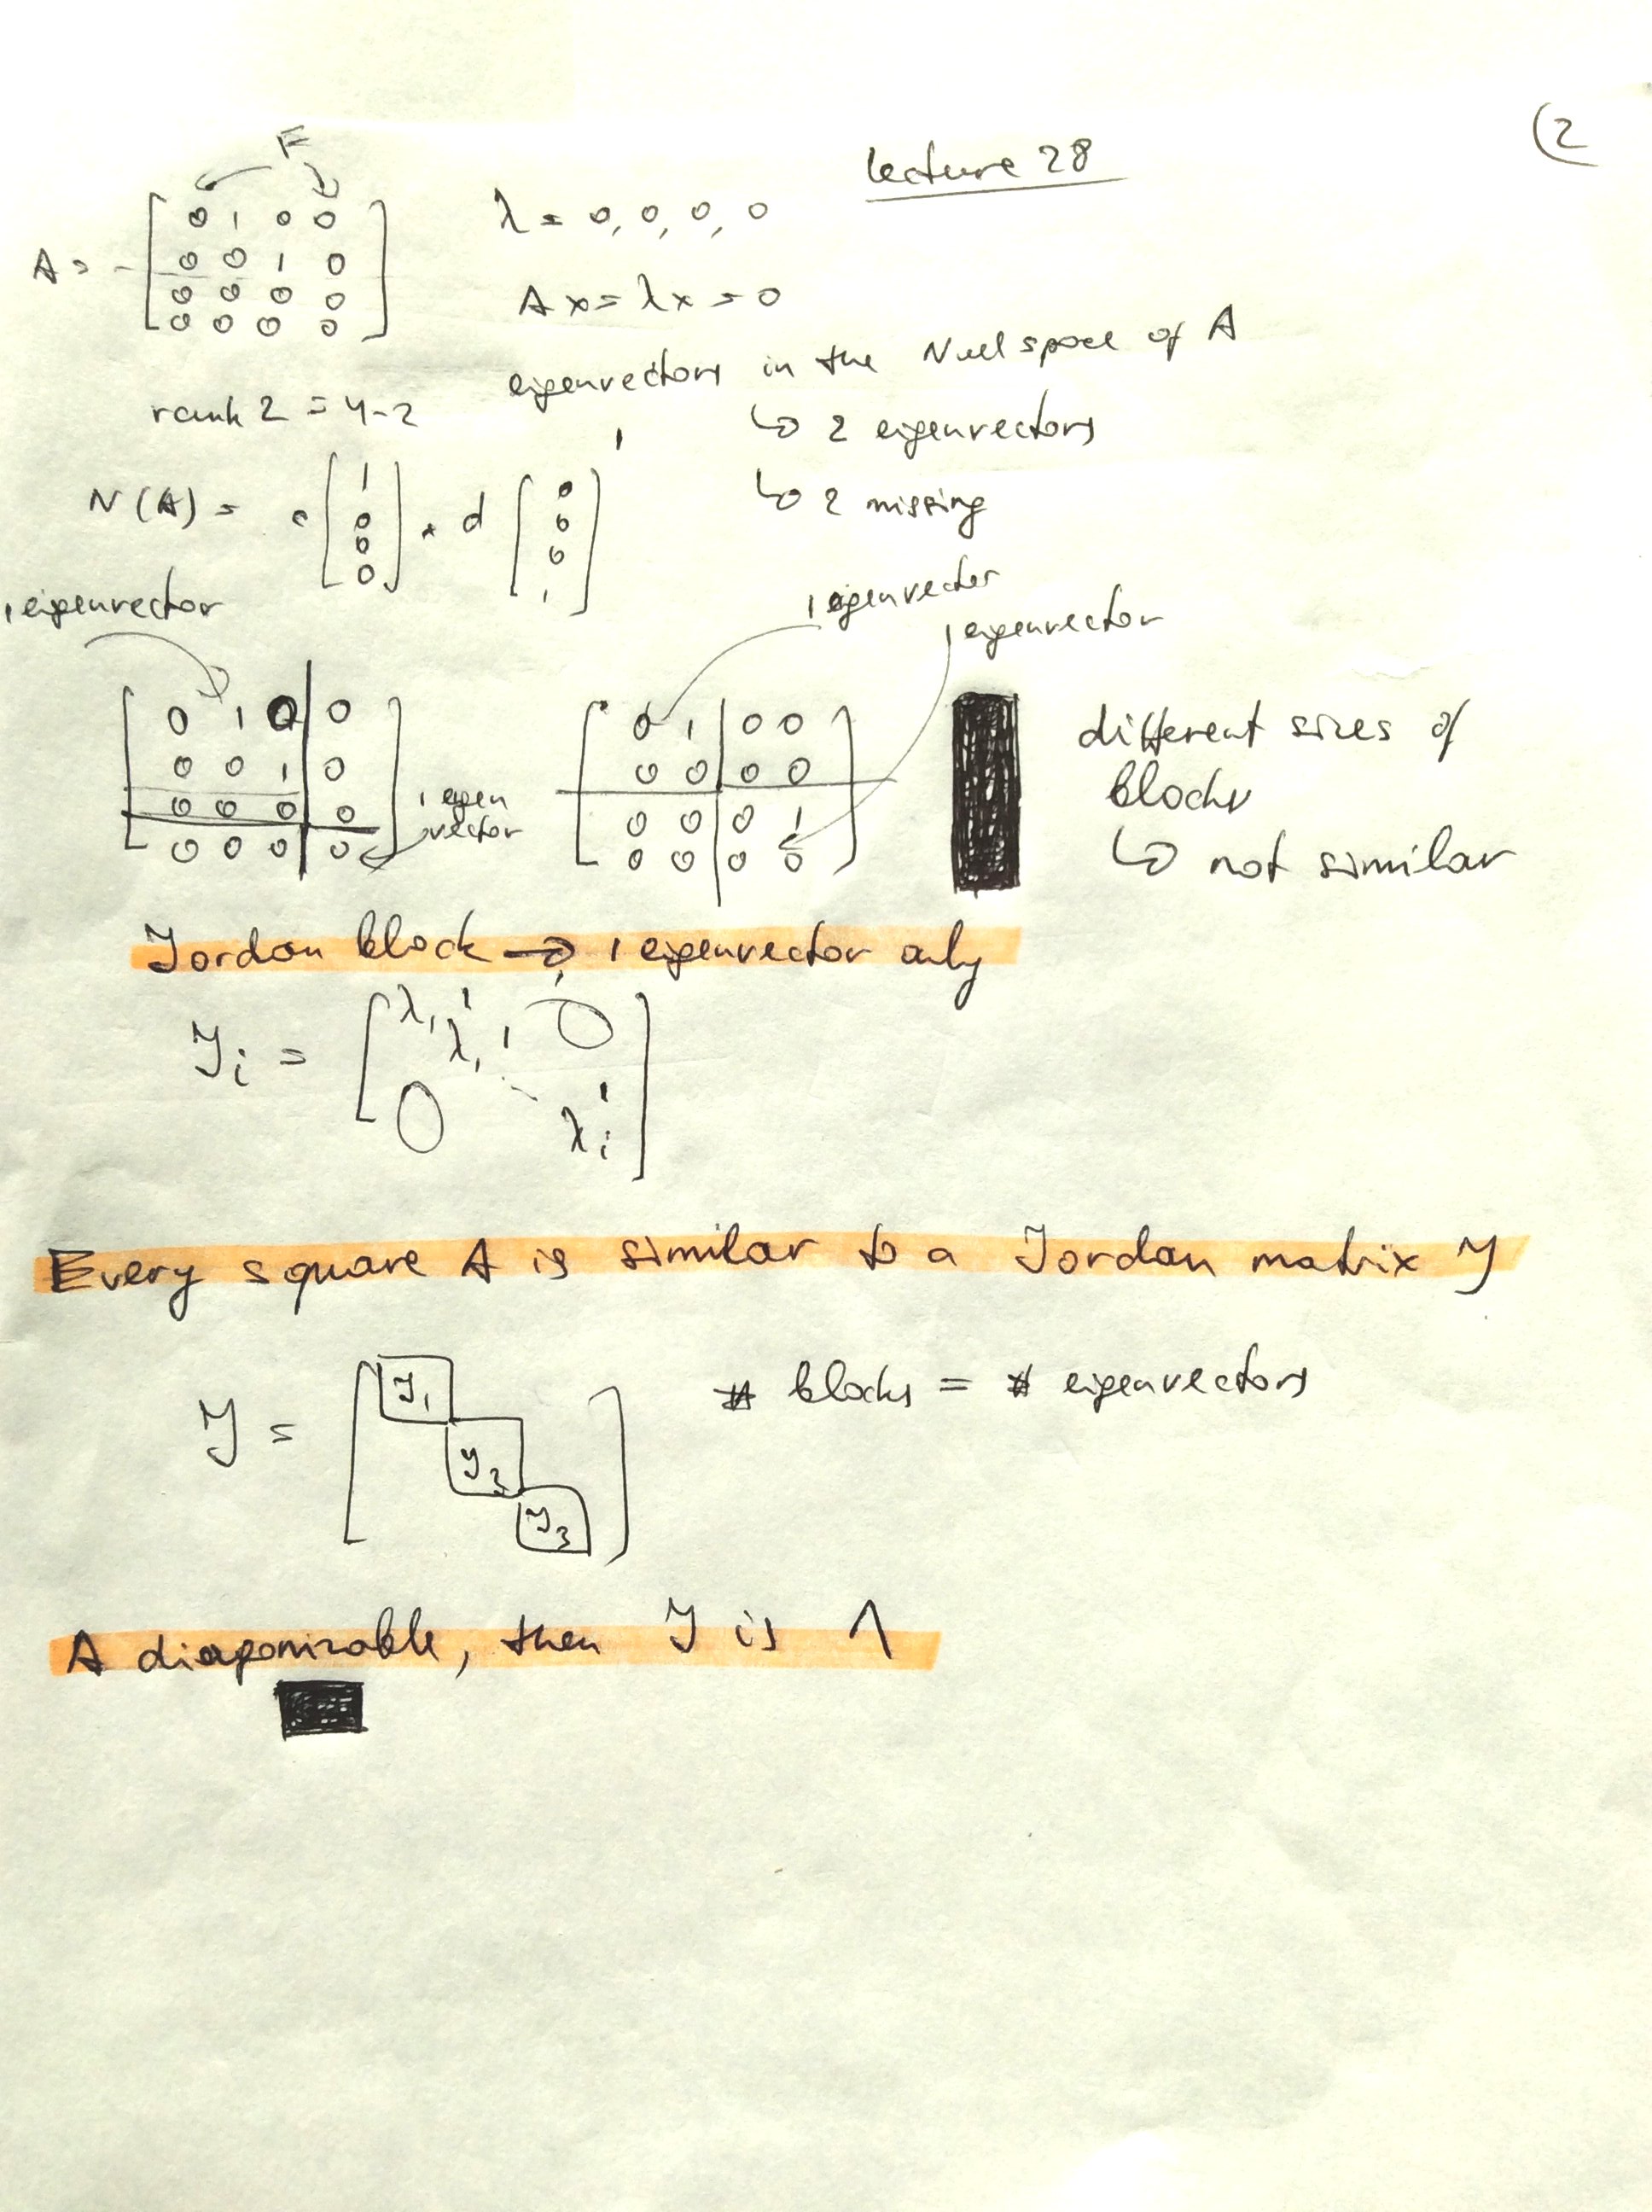 (2
Lecture 28
F
A = [0 1 0 0
0 0 1 0
0 0 0 0
0 0 0 0]
λ = 0, 0, 0, 0
Ax = λx = 0
eigenvectors in the Nullspace of A
rank 2 = 4-2
↳ 2 eigenvectors
↳ 2 missing
N(A) = c [1 0 0 0] + d [0 0 0 1]
1 eigenvector
1 eigenvector
1 eigenvector
[0 1 0 | 0
0 0 1 | 0
0 0 0 | 0
0 0 0 | 0]
1 eigen
vector
[0 1 | 0 0
0 0 | 0 0
0 0 | 0 1
0 0 | 0 0]
different sizes of
blocks
↳ not similar
Jordan block → 1 eigenvector only
J_i = [λ_i 1 0
λ_i 1
0 λ_i]
Every square A is similar to a Jordan matrix J
J = [J_1
J_2
J_3]
# blocks = # eigenvectors
A diagonizable, then J is Λ